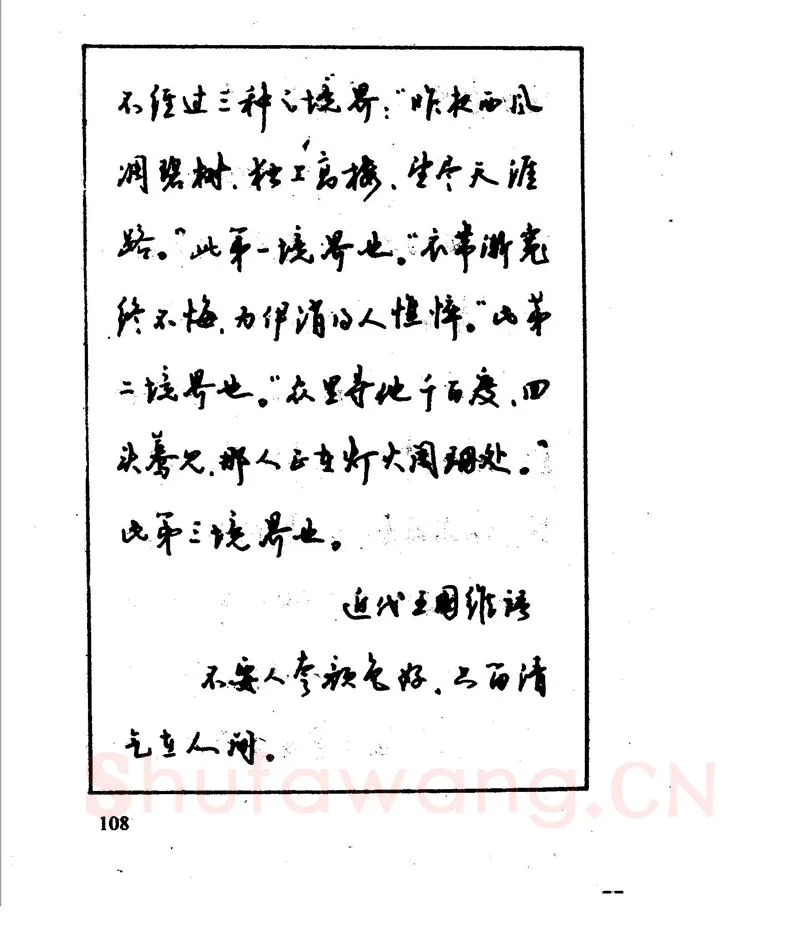 不经过三种之境界："昨夜西风
凋碧树，独上高楼，望尽天涯
路。"此第一境界也。"衣带渐宽
终不悔，为伊消得人憔悴。"此第
二境界也。"众里寻他千百度，回
头蓦见，那人正在灯火阑珊处。"
此第三境界也。
近代王国维语
不要人夸颜色好，只留清
气在人间。
108
Shufawang.CN